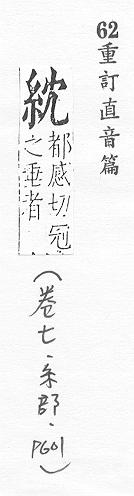 62重訂直音篇
紞都感切冠
之垂者
(卷七·糸部·P601)